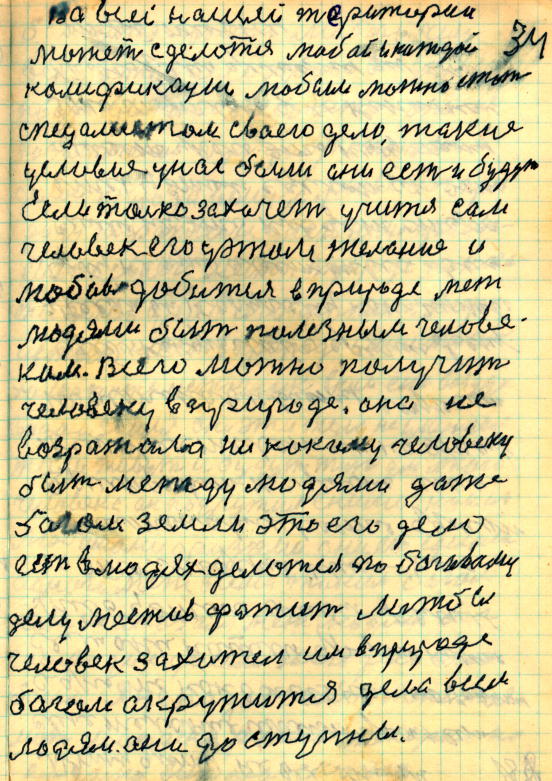 на всей нашей территории
может сделотся любой и каждой 34
колификации любым можно стат
специалистом своего дело, такие
условия унас были они ест и будут
Если толко захочет учится сам
человек его ұэтом желание и
любов добится в природе меж
людями быт полезным челове-
ком. Всего можно получит
человеку в природе. она не
возражала ни кокому человеку
быт между людями даже
богом земли это его дело
ест в людях делотся по боговому
делу местов фатит лиш бы
человек захотел им в природе
богом окружится дела всем
людям. они доступны.